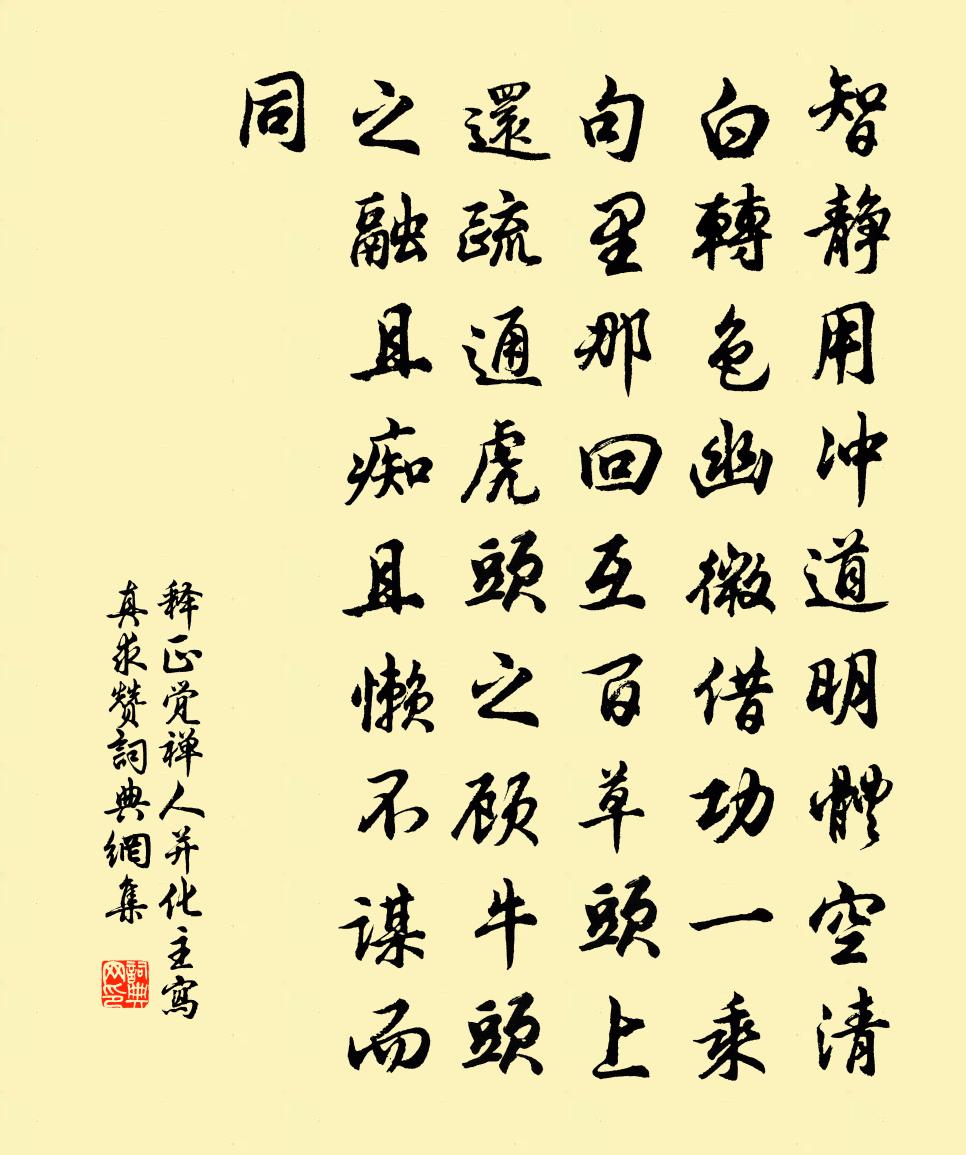 智静用冲道明體空清
白轉色幽微借功一乘
句里那回互百草頭上
還疏通虎頭之顾牛頭
之融且痴且懒不谋而
同
释正觉禅人并化主寫
真求赞詞典網集
詞典網印